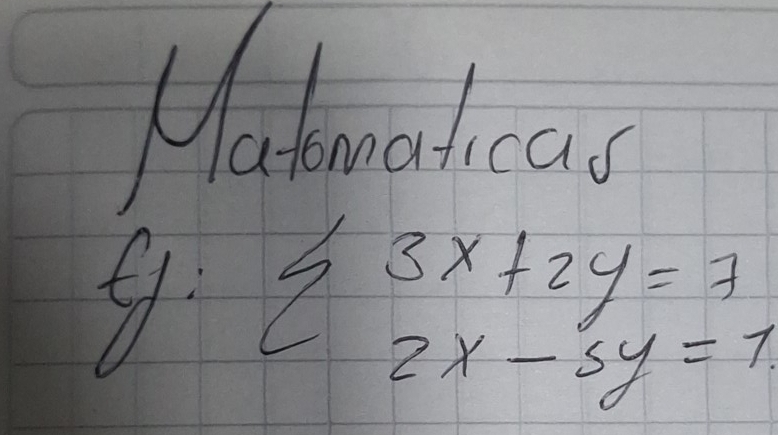 Matematicas
Ej: { 3x + 2y = 7
2x - 5y = 1.